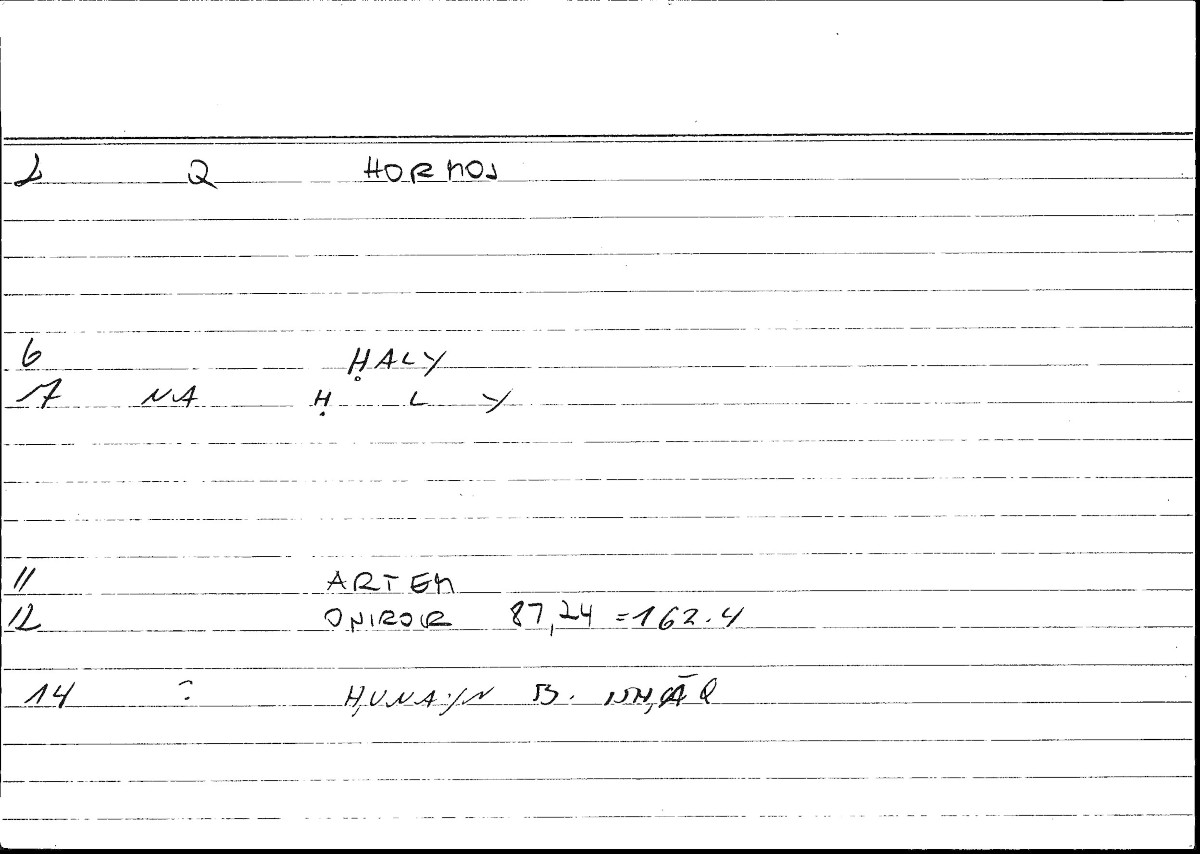 2 Q HORMOS
6 ḤALY
17 NA Ḥ L Y
11 ARTEM
12 ONIROCR 87,24 = 162.4
14 ? ḤUNAYN B. ISḤĀQ